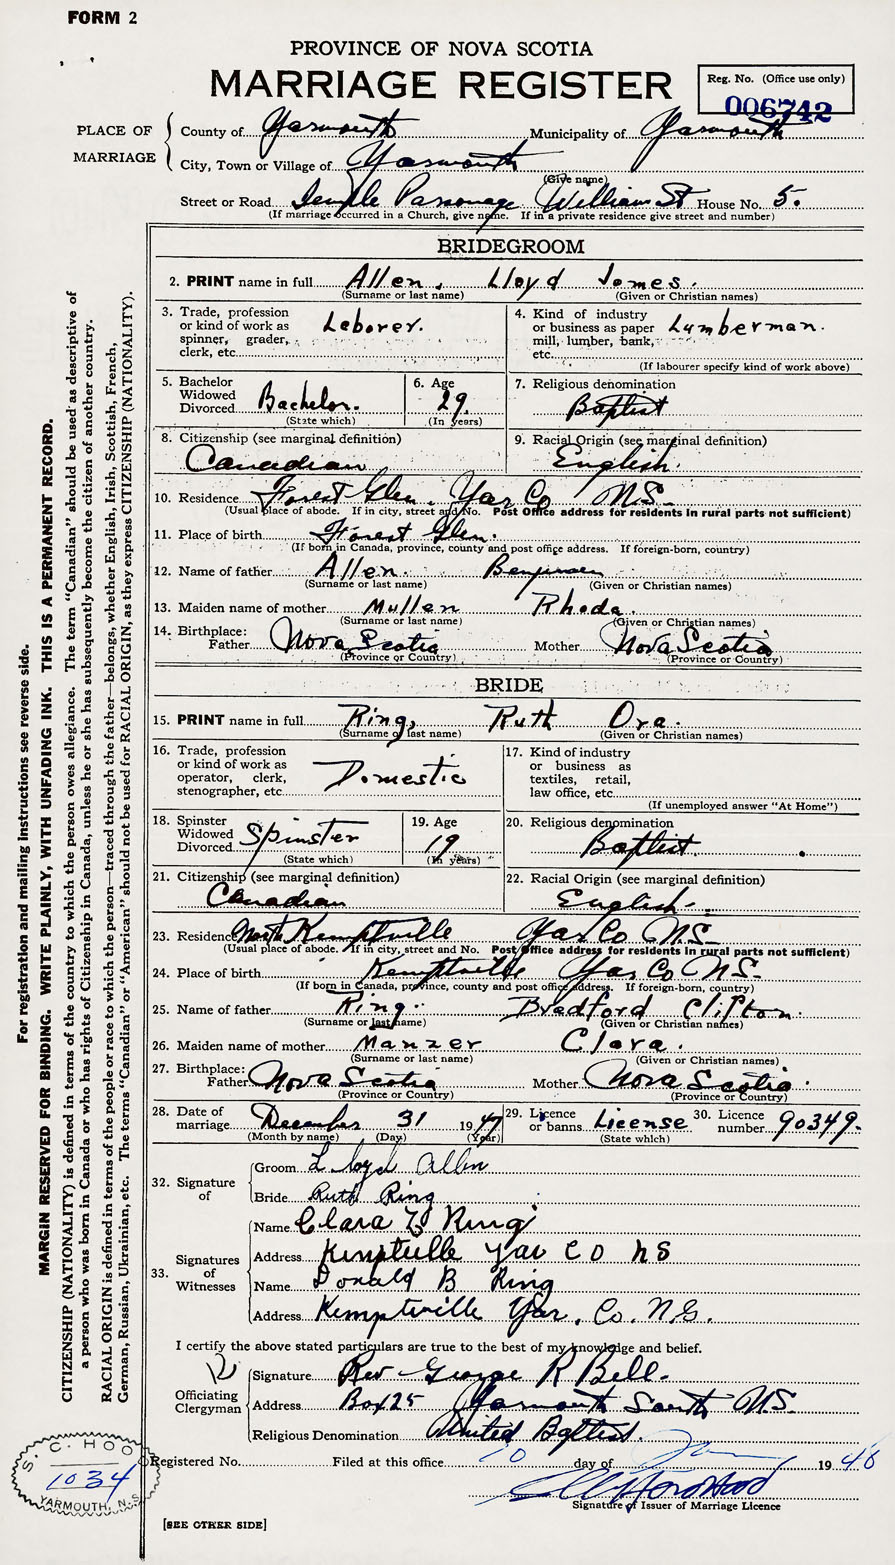 FORM 2
PROVINCE OF NOVA SCOTIA
MARRIAGE REGISTER
Reg. No. (Office use only)
006742
PLACE OF MARRIAGE
County of Yarmouth Municipality of Yarmouth
City, Town or Village of Yarmouth
(Give name)
Street or Road Temple Parsonage William St House No. 5.
(If marriage occurred in a Church, give name. If in a private residence give street and number)
BRIDEGROOM
2. PRINT name in full Allen, Lloyd James.
(Surname or last name) (Given or Christian names)
3. Trade, profession or kind of work as spinner, grader, clerk, etc. Laborer.
4. Kind of industry or business as paper mill, lumber, bank, etc. Lumberman.
(If labourer specify kind of work above)
5. Bachelor Widowed Divorced Bachelor.
(State which)
6. Age 29.
(In years)
7. Religious denomination
Baptist
8. Citizenship (see marginal definition)
Canadian
9. Racial Origin (see marginal definition)
English.
10. Residence Forest Glen. Yar Co N.S.
(Usual place of abode. If in city, street and No. Post Office address for residents in rural parts not sufficient)
11. Place of birth Forest Glen.
(If born in Canada, province, county and post office address. If foreign-born, country)
12. Name of father Allen. Benjamen
(Surname or last name) (Given or Christian names)
13. Maiden name of mother Mullen Rhoda.
(Surname or last name) (Given or Christian names)
14. Birthplace: Father Nova Scotia Mother Nova Scotia
(Province or Country) (Province or Country)
BRIDE
15. PRINT name in full Ring, Ruth Ora.
(Surname or last name) (Given or Christian names)
16. Trade, profession or kind of work as operator, clerk, stenographer, etc. Domestic
17. Kind of industry or business as textiles, retail, law office, etc.
(If unemployed answer "At Home")
18. Spinster Widowed Divorced Spinster
(State which)
19. Age 19
(In years)
20. Religious denomination
Baptist.
21. Citizenship (see marginal definition)
Canadian
22. Racial Origin (see marginal definition)
English.
23. Residence North Kemptville Yar Co N.S.
(Usual place of abode. If in city, street and No. Post Office address for residents in rural parts not sufficient)
24. Place of birth Kemptville Yar Co N.S.
(If born in Canada, province, county and post office address. If foreign-born, country)
25. Name of father Ring. Bradford Clifton.
(Surname or last name) (Given or Christian names)
26. Maiden name of mother Manzer Clara.
(Surname or last name) (Given or Christian names)
27. Birthplace: Father Nova Scotia Mother Nova Scotia.
(Province or Country) (Province or Country)
28. Date of marriage December 31 1947
(Month by name) (Day) (Year)
29. Licence or banns License
(State which)
30. Licence number 90349.
32. Signature of
Groom Lloyd Allen
Bride Ruth Ring
33. Signatures of Witnesses
Name Clara B Ring
Address Kemptville Yar Co NS
Name Donald B Ring
Address Kemptville Yar. Co. N.S.
I certify the above stated particulars are true to the best of my knowledge and belief.
Officiating Clergyman
Signature Rev George R Bell.
Address Box 25 Yarmouth South N.S.
Religious Denomination United Baptist.
Registered No. Filed at this office 10 day of Jan 1948
Signature of Issuer of Marriage Licence
[SEE OTHER SIDE]
S. C. HOO
1034
YARMOUTH, N.S.
For registration and mailing instructions see reverse side.
MARGIN RESERVED FOR BINDING. WRITE PLAINLY, WITH UNFADING INK. THIS IS A PERMANENT RECORD.
CITIZENSHIP (NATIONALITY) is defined in terms of the country to which the person owes allegiance. The term "Canadian" should be used as descriptive of
a person who was born in Canada or who has rights of Citizenship in Canada, unless he or she has subsequently become the citizen of another country.
RACIAL ORIGIN is defined in terms of the people or race to which the person—traced through the father—belongs, whether English, Irish, Scottish, French,
German, Russian, Ukrainian, etc. The terms "Canadian" or "American" should not be used for RACIAL ORIGIN, as they express CITIZENSHIP (NATIONALITY).